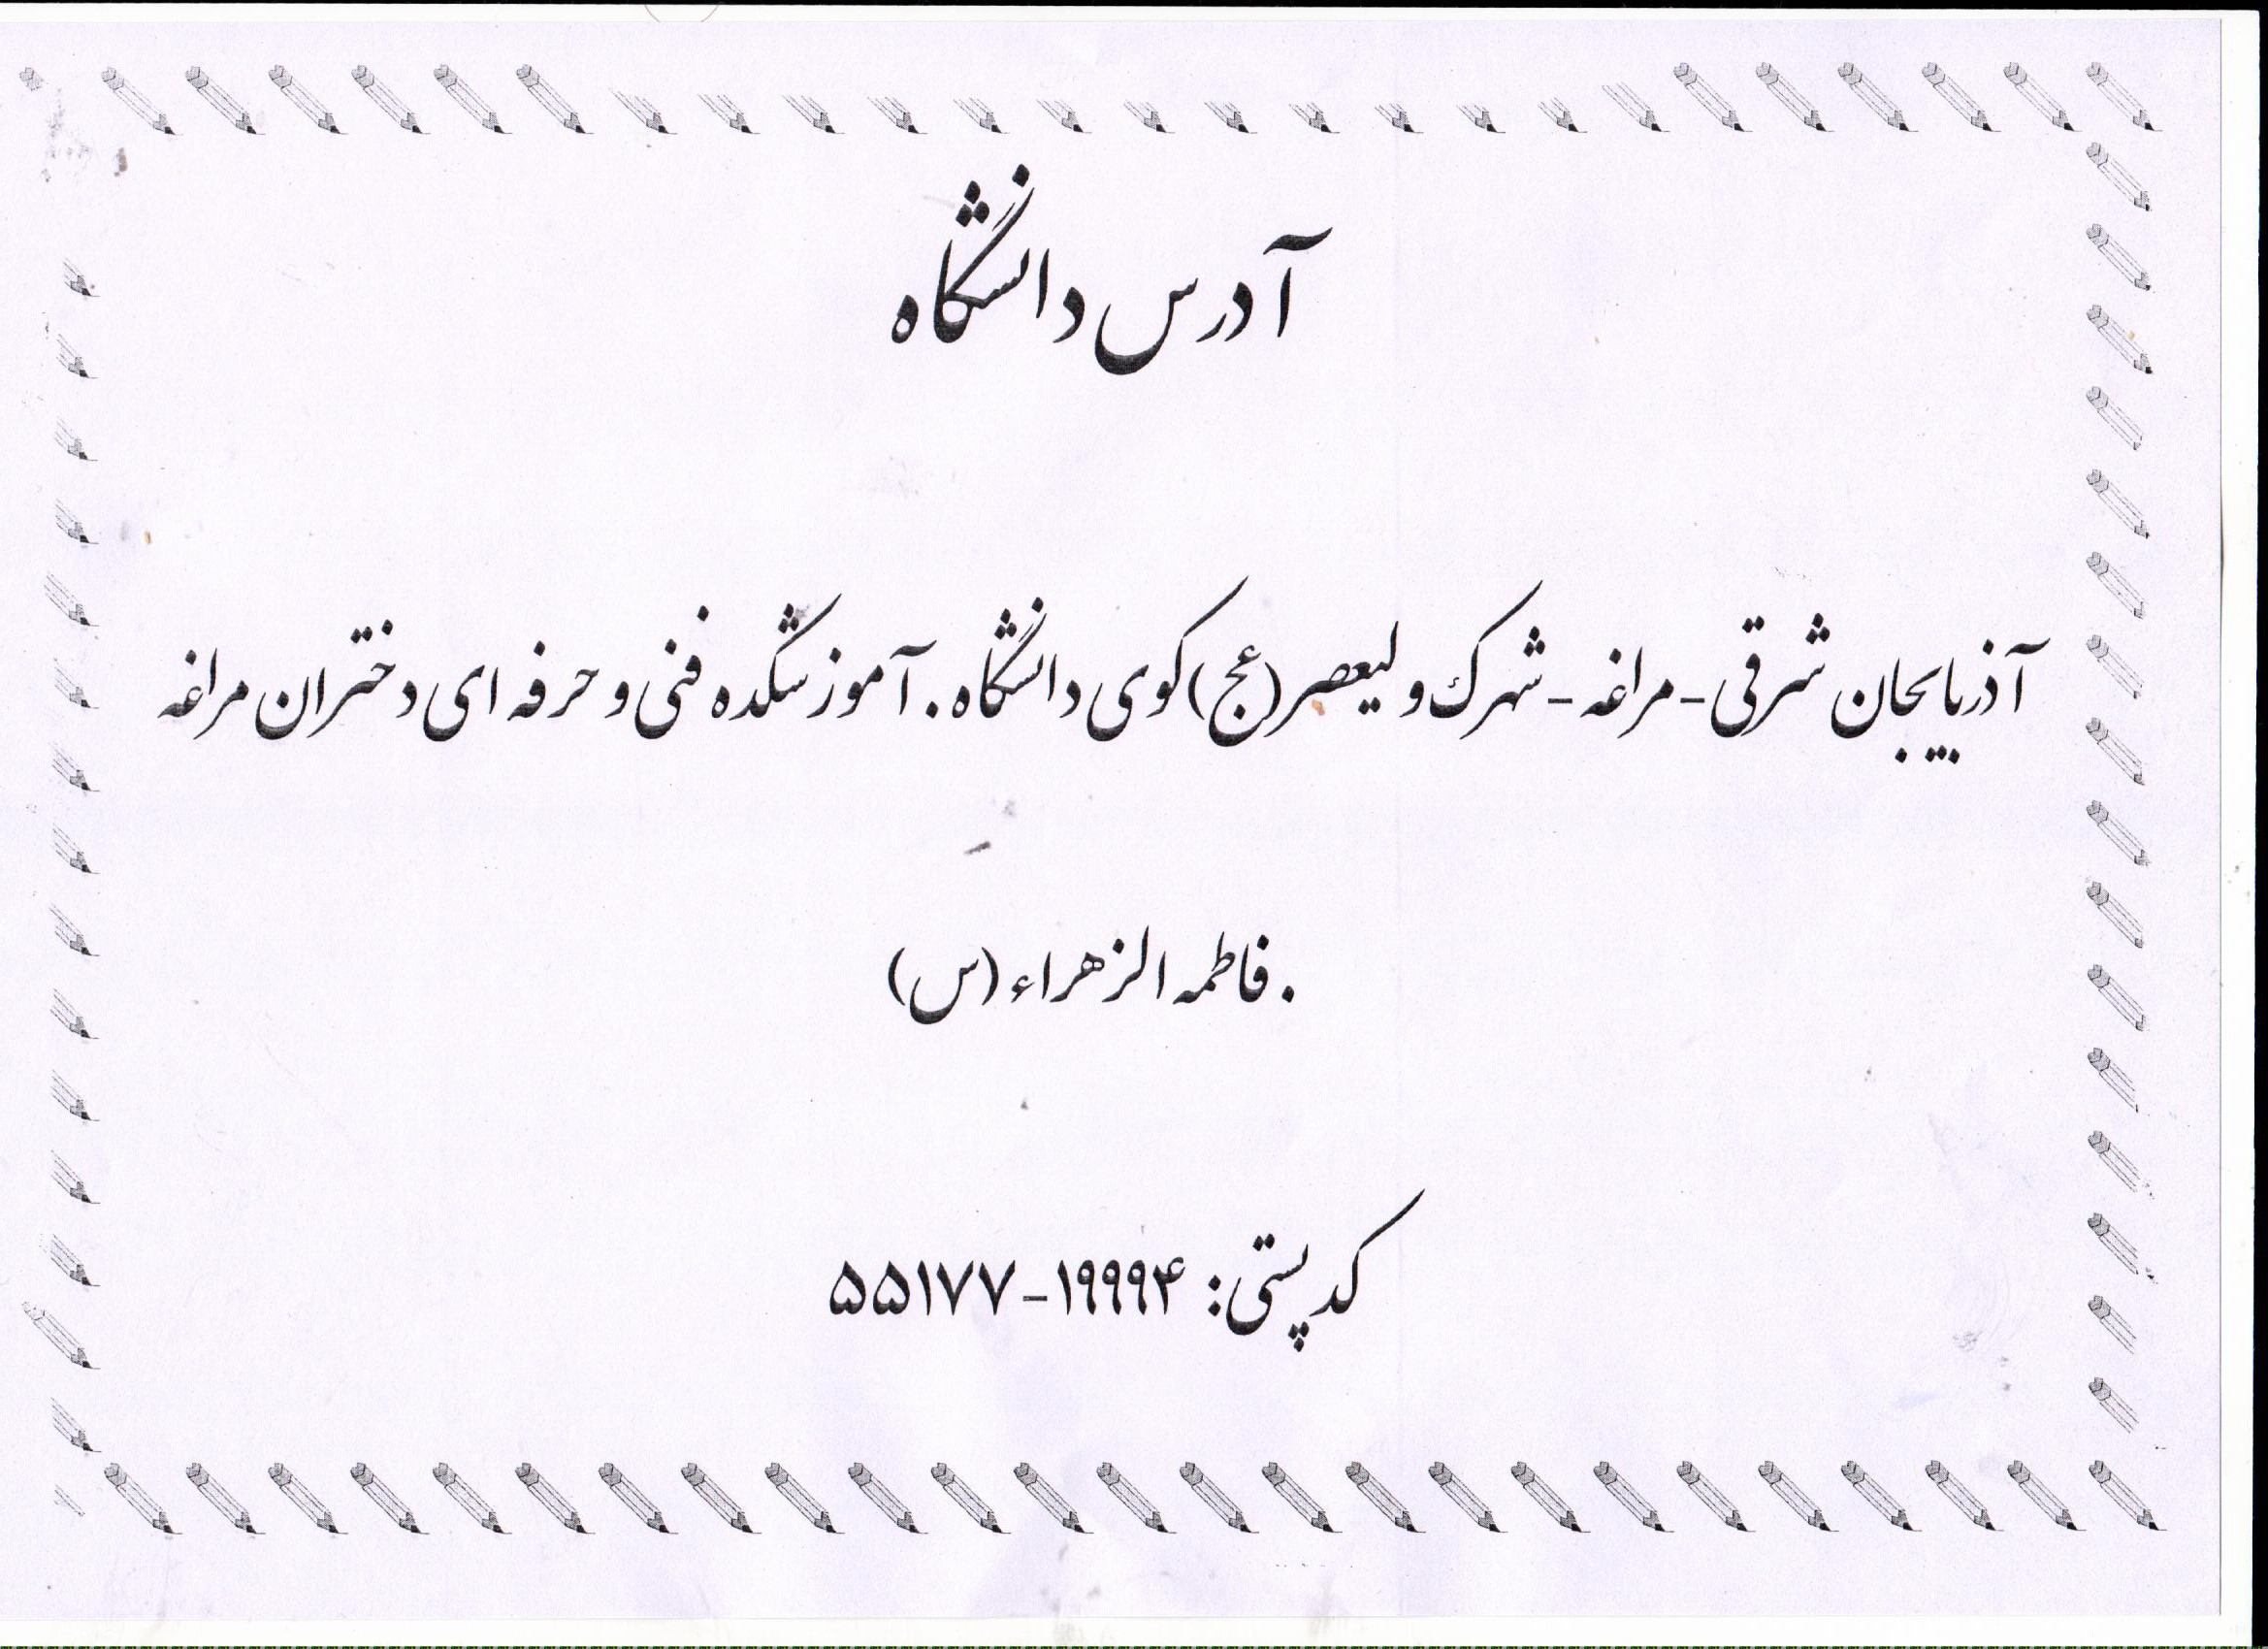 آدرس دانشگاه
آذربایجان شرقی - مراغه - شهرک ولیعصر (عج) کوی دانشگاه . آموزشکده فنی و حرفه ای دختران مراغه
. فاطمه الزهراء (س)
کد پستی: ۱۹۹۹۴-۵۵۱۷۷